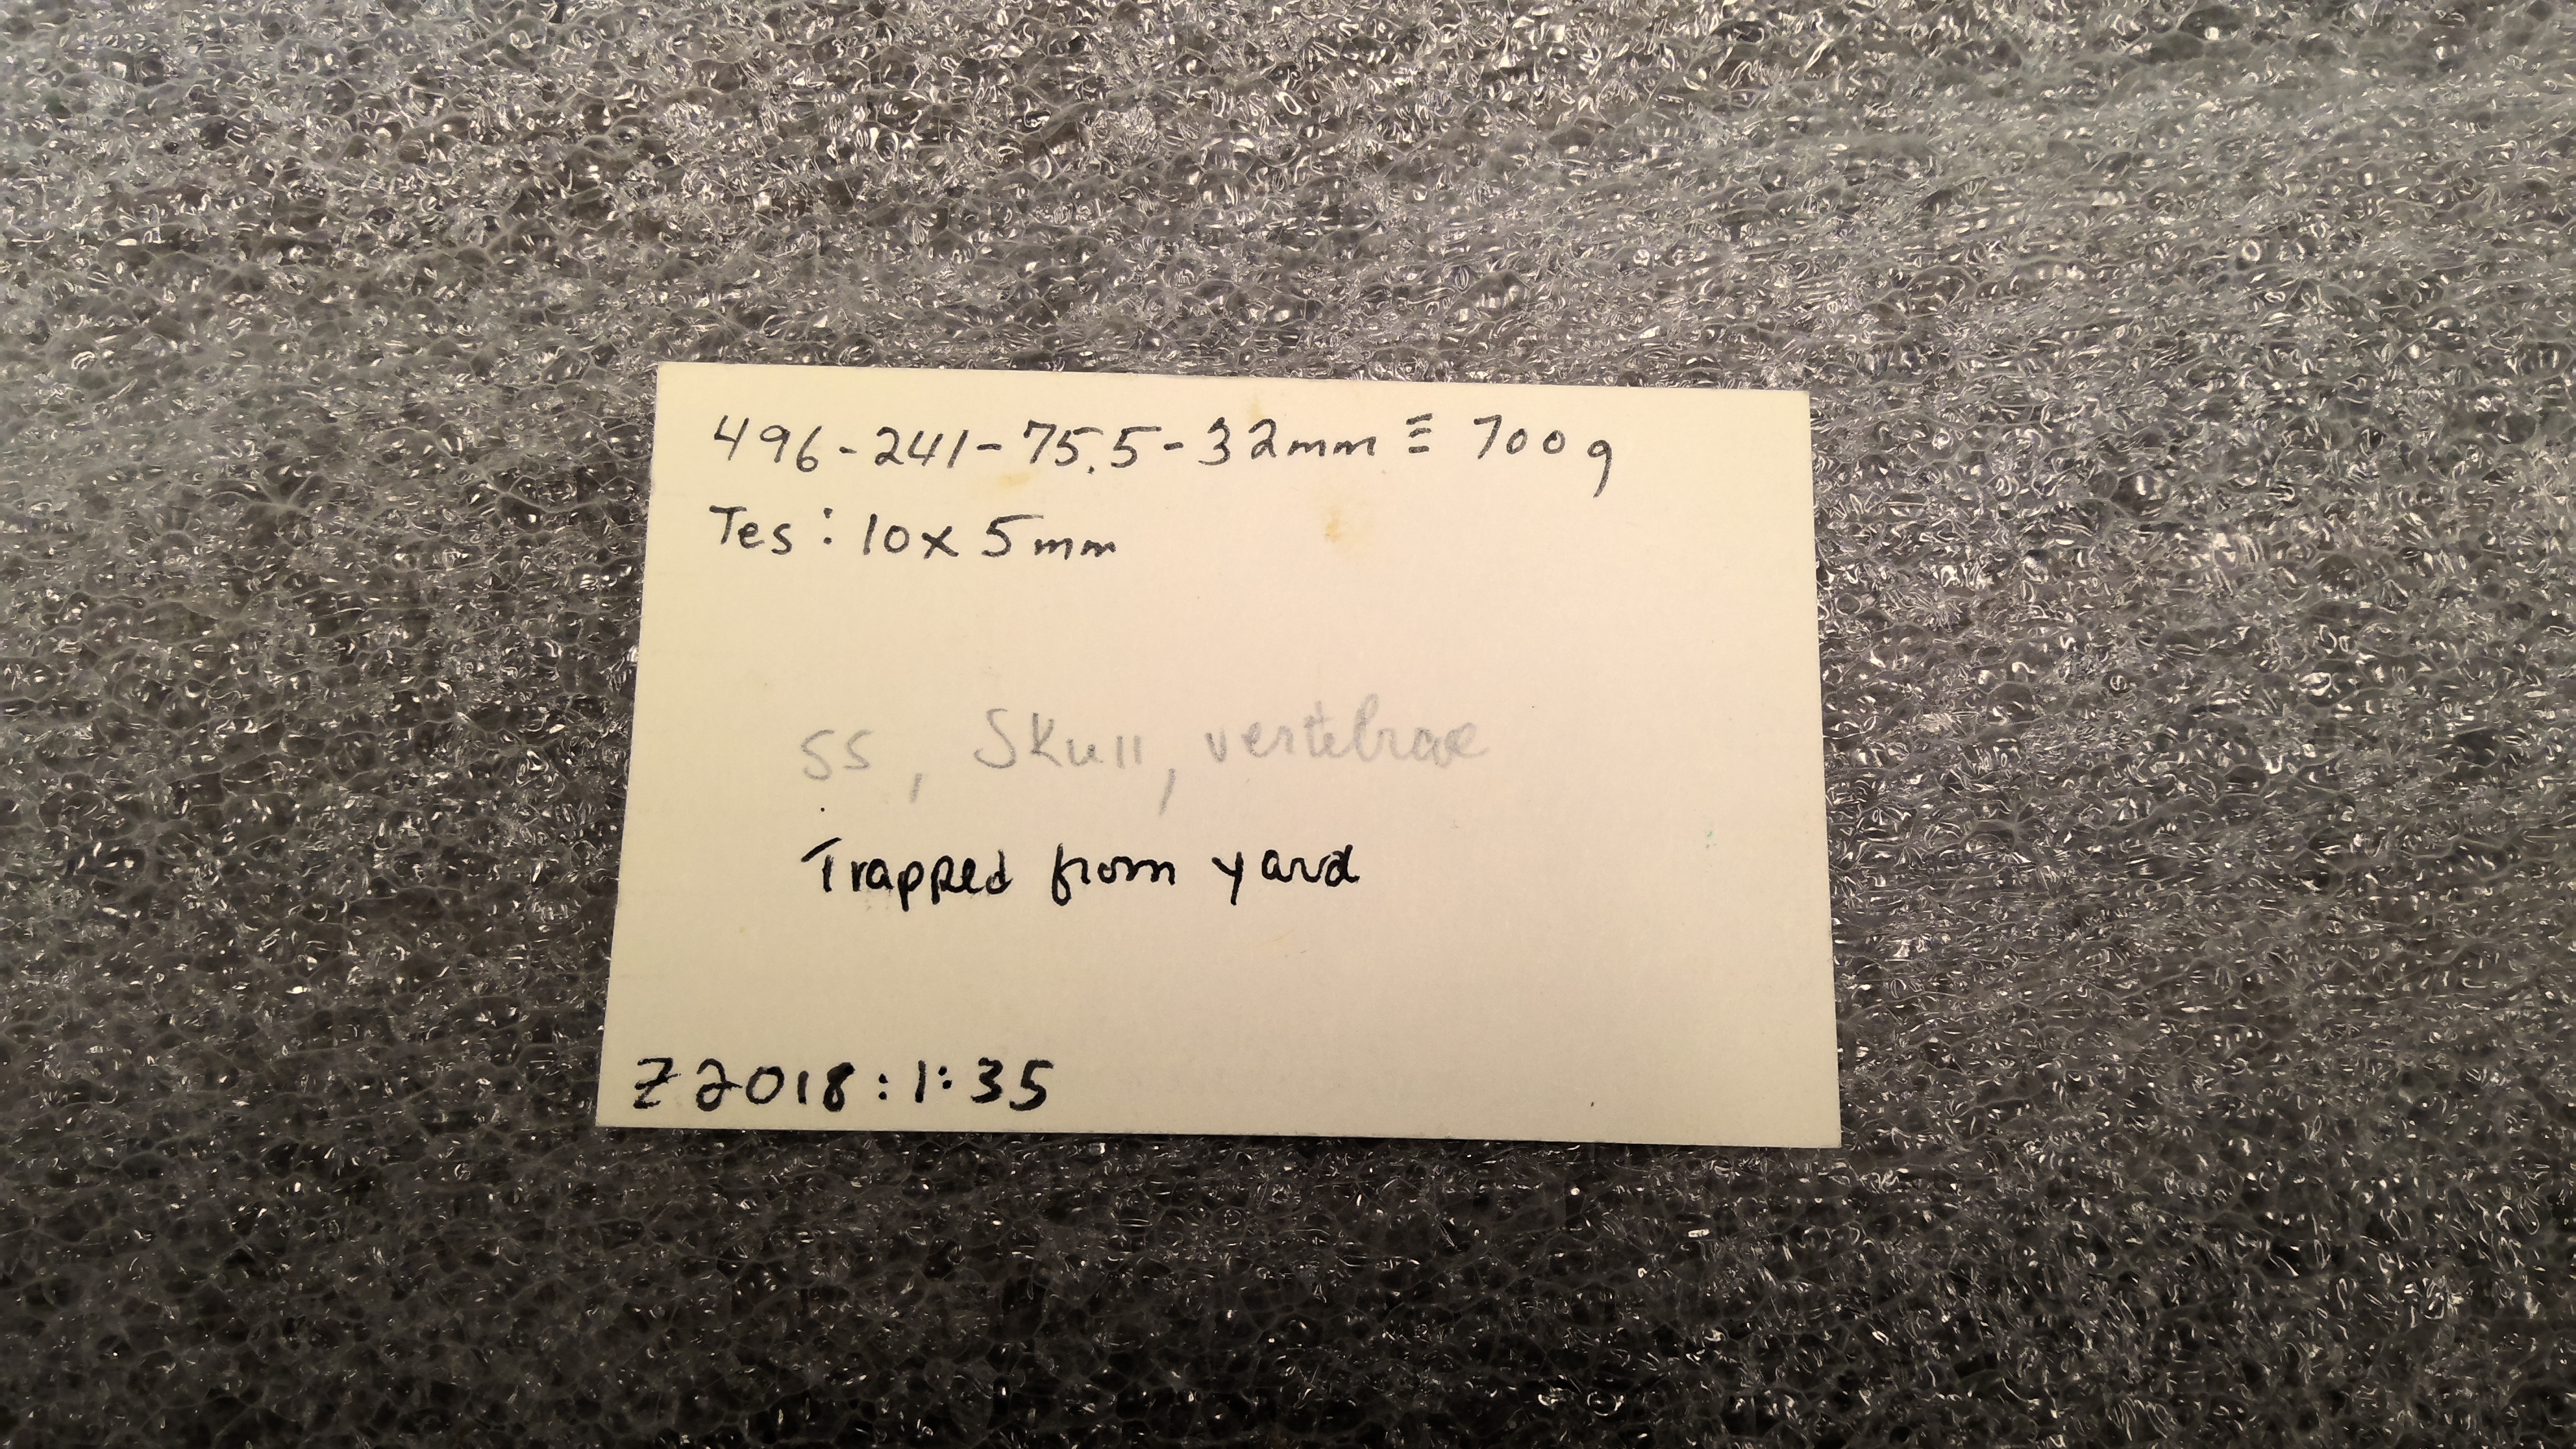 496-241-75.5-32mm ≡ 700g
Tes: 10x5mm
SS, Skull, vertebrae
Trapped from yard
Z2018:1:35